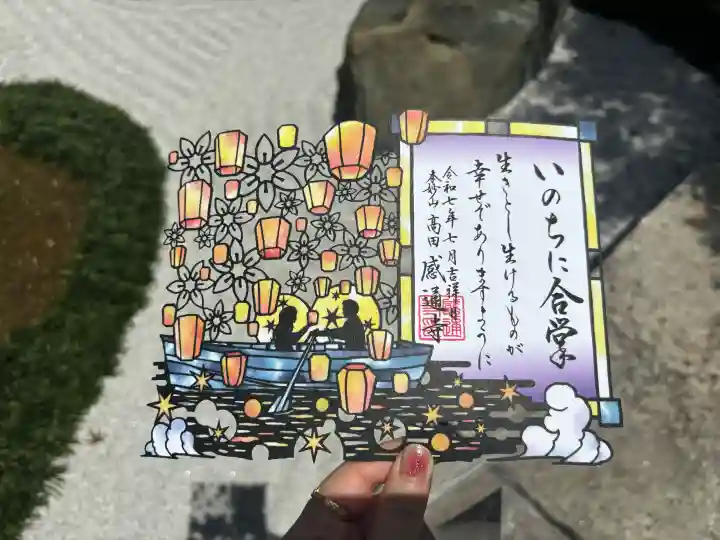 いのちに合掌
生きとし生けるものが
幸せでありますように
令和七年七月吉祥日
本妙山 高田 感通寺